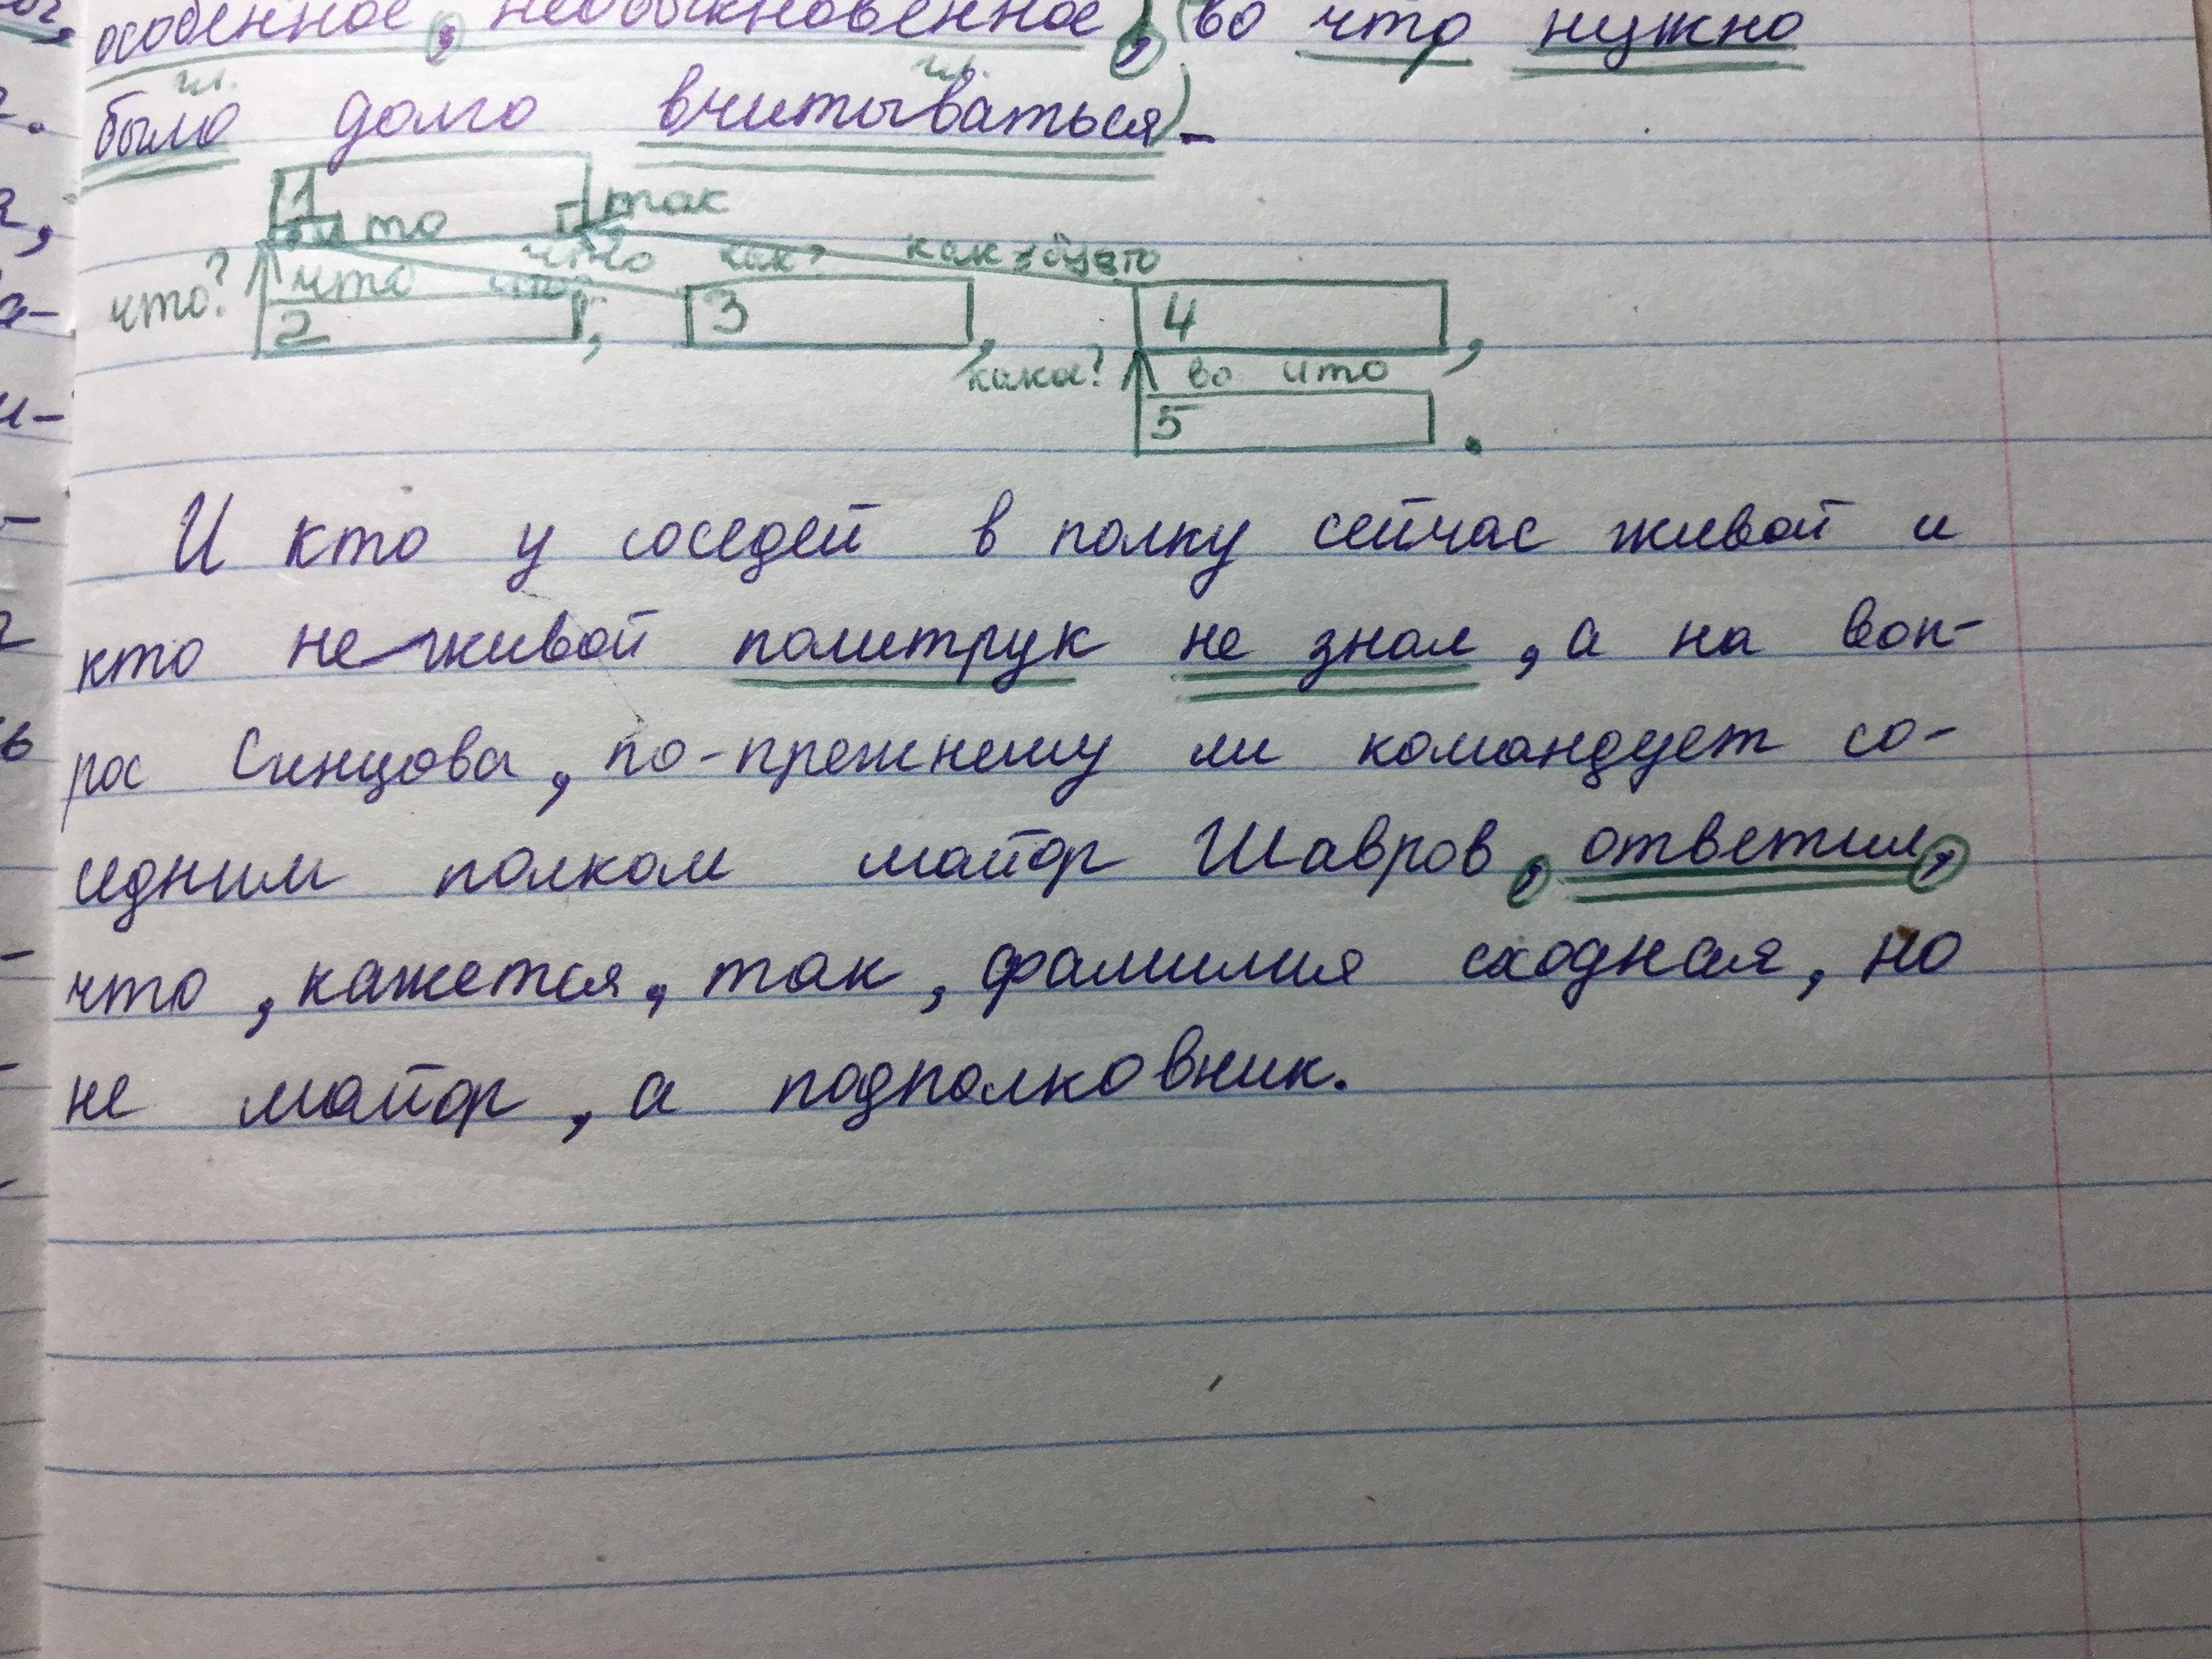 особенное, необыкновенное, (во что нужно
гл. гл.
было долго вчитываться).
1
то так
что как? как будто
что? что
2, 3, 4,
какое? во что
5.
И кто у соседей в полку сейчас живой и
кто не живой политрук не знал, а на воп-
рос Синцова, по-прежнему ли командует со-
седним полком майор Шавров, ответил,
что, кажется, так, фамилия сходная, но
не майор, а подполковник.